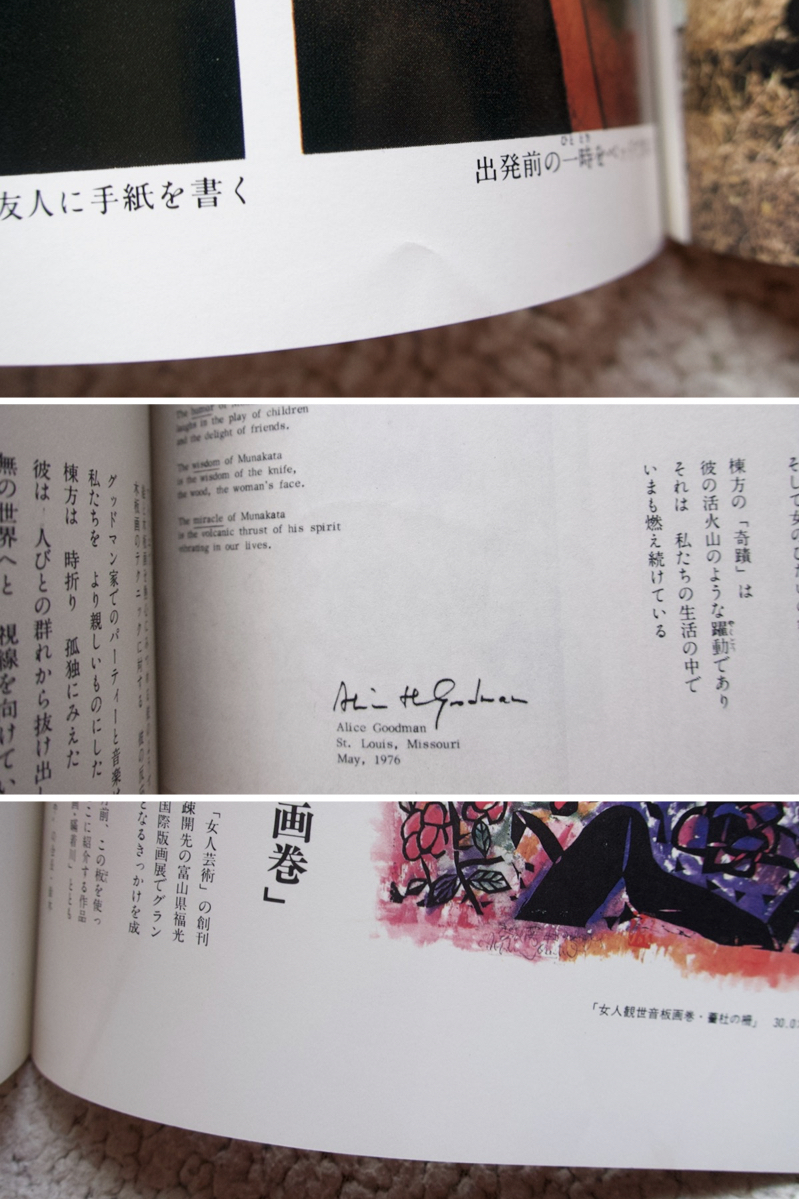 友人に手紙を書く
出発前の一時を
laughs in the play of children
and the delight of friends.
The wisdom of Munakata
is the wisdom of the knife,
the wood, the woman's face.
The miracle of Munakata
is the volcanic thrust of his spirit
vibrating in our lives.
Alice Goodman
St. Louis, Missouri
May, 1976
棟方の「奇蹟」は
彼の活火山のような躍動であり
それは 私たちの生活の中で
いまも燃え続けている
グッドマン家でのパーティーと音楽は
私たちを より親しいものにした
棟方は 時折り 孤独にみえた
彼は 人びとの群れから抜け出し
無の世界へと 視線を向けてい
画巻」
「女人芸術」の創刊
疎開先の富山県福光
国際版画展でグラン
となるきっかけを成
前、この板を使っ
こに紹介する作品
「女人観世音板画巻・
の柵」 30.